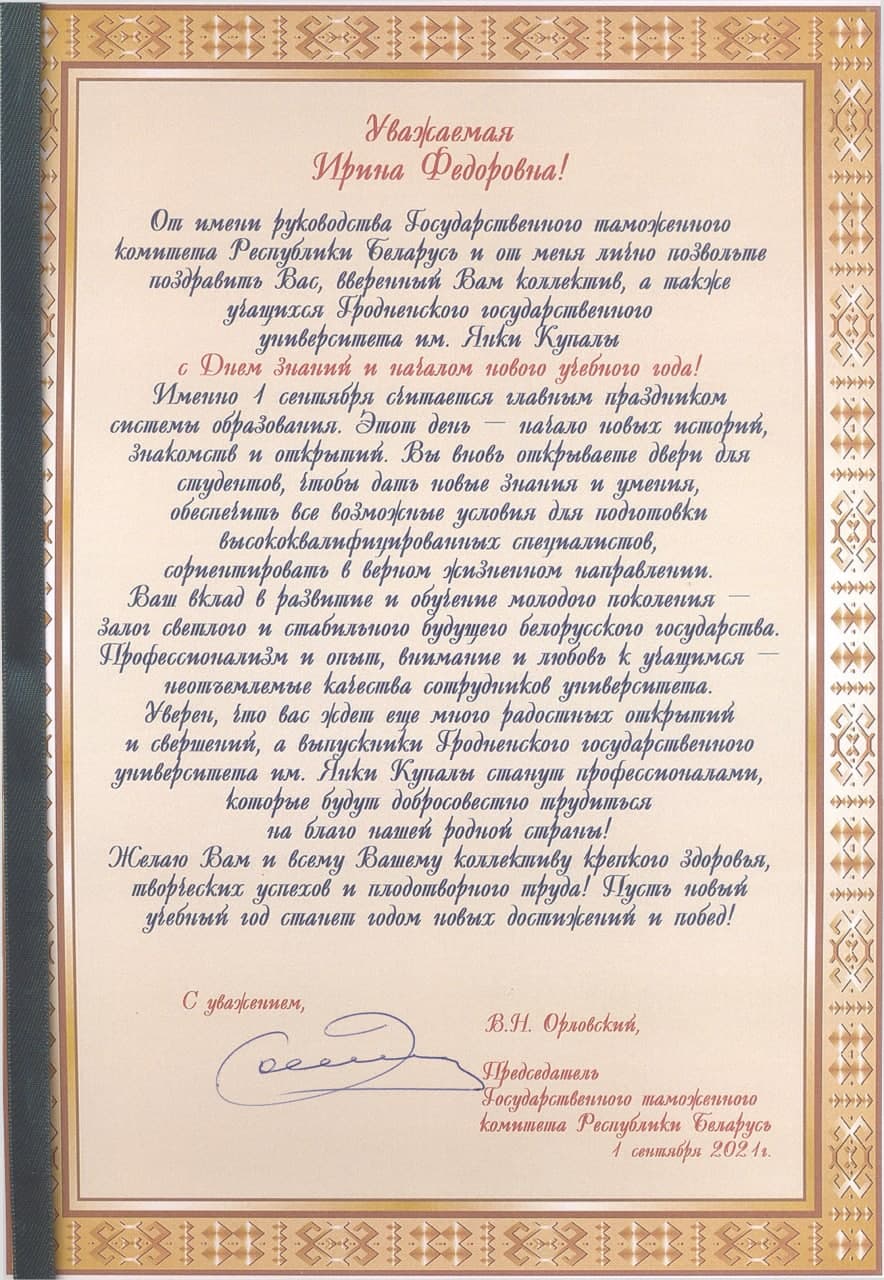 Уважаемая
Ирина Федоровна!
От имени руководства Государственного таможенного
комитета Республики Беларусь и от меня лично позвольте
поздравить Вас, вверенный Вам коллектив, а также
учащихся Гродненского государственного
университета им. Янки Купалы
с Днем знаний и началом нового учебного года!
Именно 1 сентября считается главным праздником
системы образования. Этот день — начало новых историй,
знакомств и открытий. Вы вновь открываете двери для
студентов, чтобы дать новые знания и умения,
обеспечить все возможные условия для подготовки
высококвалифицированных специалистов,
сориентировать в верном жизненном направлении.
Ваш вклад в развитие и обучение молодого поколения —
залог светлого и стабильного будущего белорусского государства.
Профессионализм и опыт, внимание и любовь к учащимся —
неотъемлемые качества сотрудников университета.
Уверен, что вас ждет еще много радостных открытий
и свершений, а выпускники Гродненского государственного
университета им. Янки Купалы станут профессионалами,
которые будут добросовестно трудиться
на благо нашей родной страны!
Желаю Вам и всему Вашему коллективу крепкого здоровья,
творческих успехов и плодотворного труда! Пусть новый
учебный год станет годом новых достижений и побед!
С уважением,
В.Н. Орловский,
Председатель
Государственного таможенного
комитета Республики Беларусь
1 сентября 2021г.